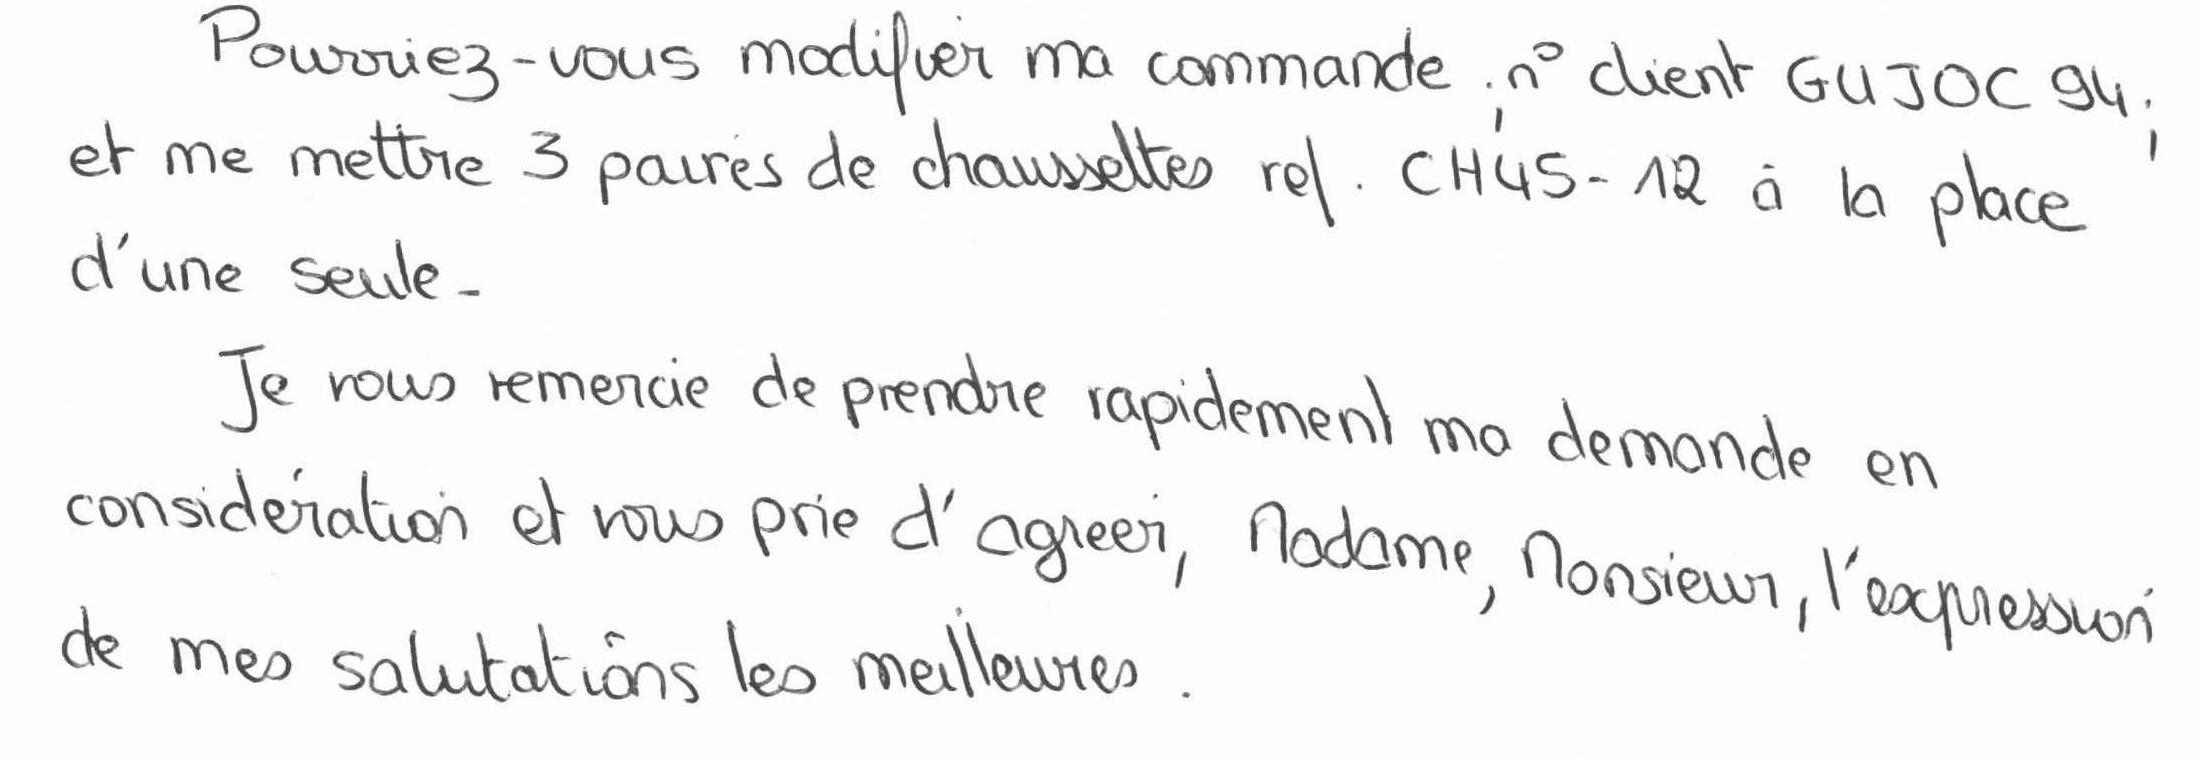 Pourriez-vous modifier ma commande ; n° client GUJOC 94 ;
et me mettre 3 paires de chaussettes ref. CH45-12 à la place
d'une seule -
Je vous remercie de prendre rapidement ma demande en
considération et vous prie d'agréer, Madame, Monsieur, l'expression
de mes salutations les meilleures .